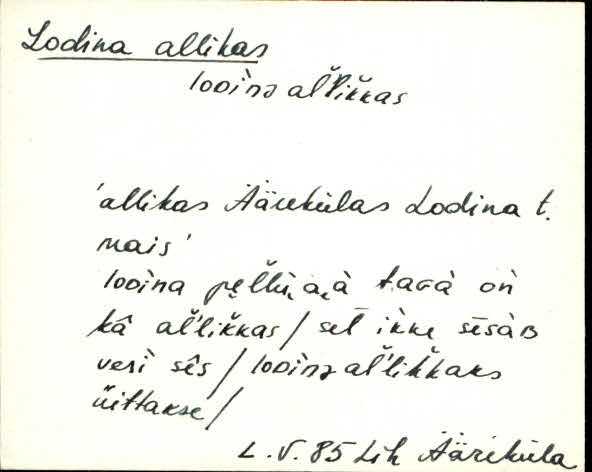 Lodina allikas
looìnɒ al̆likkas
'allikas Äärekülas Lodina t.
mais'
looìna taGà on
kâ al̆likkas / set ikke sèsàʙ
veri sês / looìnɒ al̆likkaks
üittakse /
L. V. 85 Lih Ääreküla